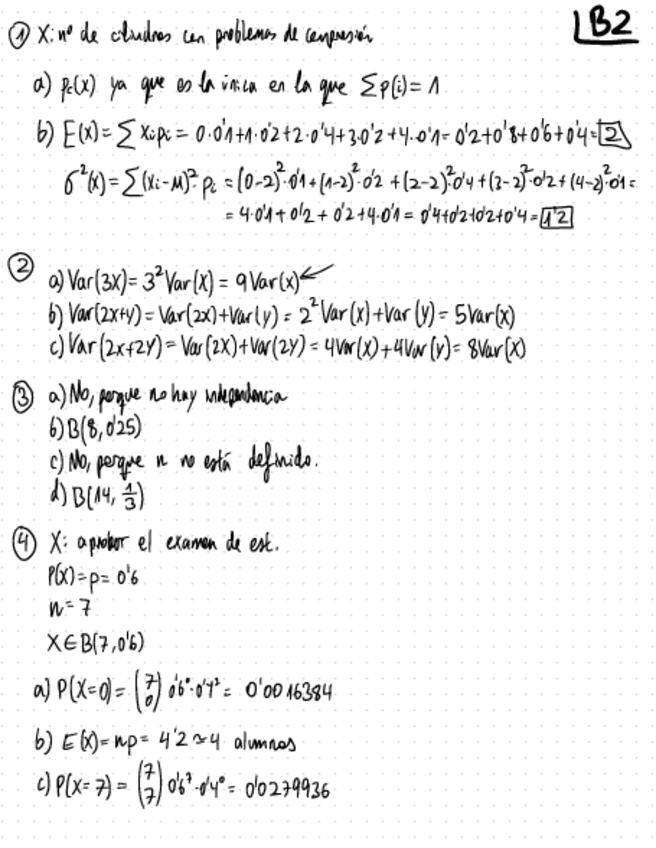 B2
① X: nº de cilindros con problemas de compresión
a) p_c(x) ya que es la única en la que Σp(i) = 1
b) E(x) = Σ xi·pi = 0·0'1+1·0'2+2·0'4+3·0'2+4·0'1 = 0'2+0'8+0'6+0'4 = 2
σ²(x) = Σ(xi-μ)²·pi = (0-2)²·0'1+(1-2)²·0'2+(2-2)²·0'4+(3-2)²·0'2+(4-2)²·0'1 =
= 4·0'1+0'2+0'2+4·0'1 = 0'4+0'2+0'2+0'4 = 1'2
② a) Var(3X) = 3² Var(X) = 9 Var(x) ←
b) Var(2x+y) = Var(2x)+Var(y) = 2² Var(x)+Var(y) = 5Var(x)
c) Var(2x+2Y) = Var(2X)+Var(2Y) = 4Var(x)+4Var(y) = 8Var(X)
③ a) No, porque no hay independencia
b) B(8, 0'25)
c) No, porque n no está definido.
d) B(14, 1/3)
④ X: aprobar el examen de est.
P(X) = p = 0'6
n = 7
X ∈ B(7, 0'6)
a) P(X=0) = (7 0) 0'6⁰·0'4⁷ = 0'0016384
b) E(x) = np = 4'2 ≃ 4 alumnos
c) P(X=7) = (7 7) 0'6⁷·0'4⁰ = 0'0279936